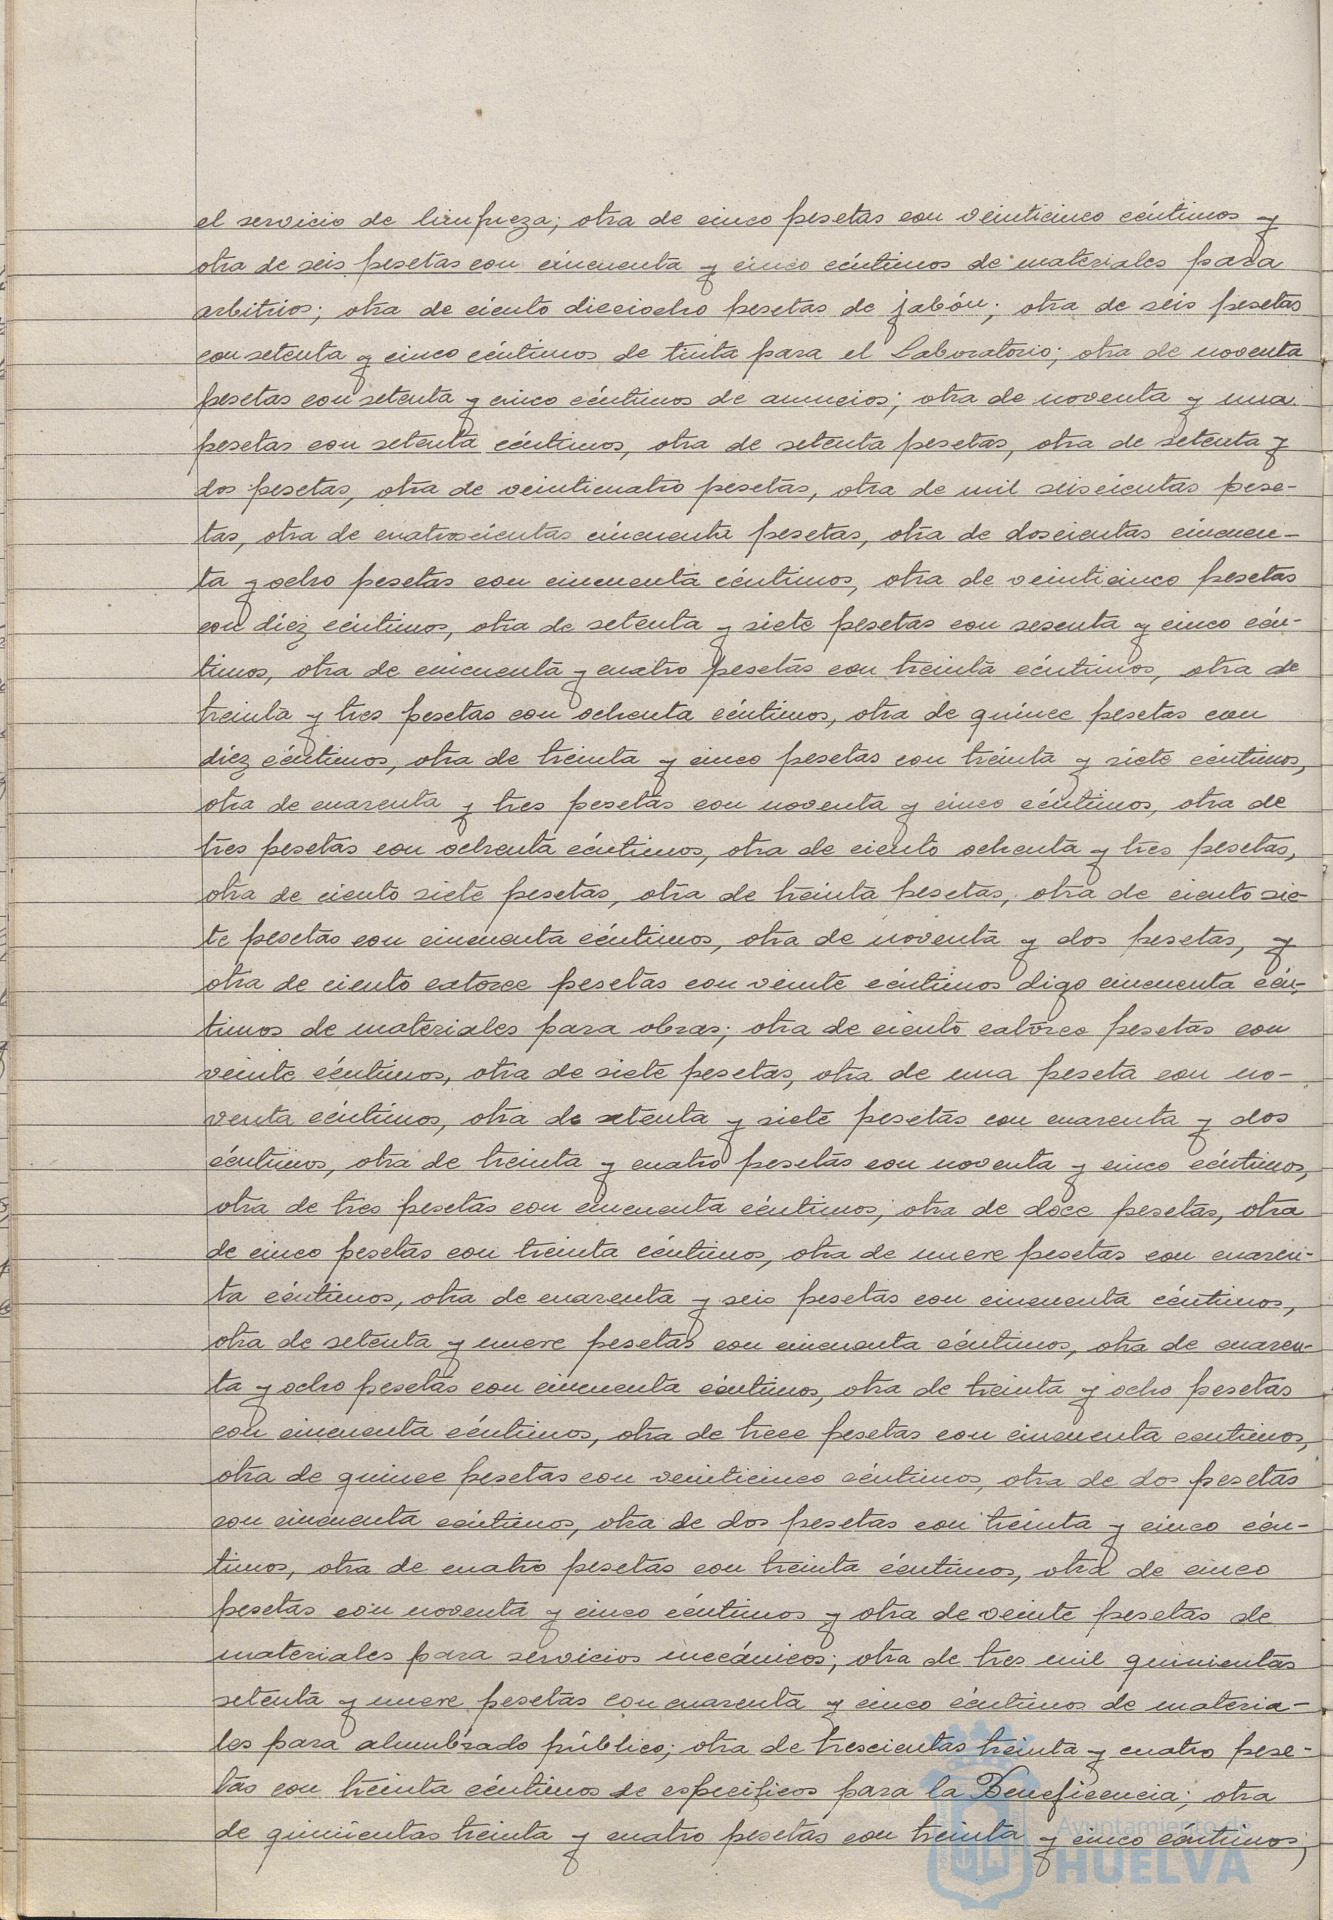 el servicio de limpieza; otra de cinco pesetas con veinticinco céntimos y
otra de seis pesetas con cincuenta y cinco céntimos de materiales para
arbitrios; otra de ciento dieciocho pesetas de jabón; otra de seis pesetas
con setenta y cinco céntimos de tinta para el Laboratorio; otra de noventa
pesetas con setenta y cinco céntimos de anuncios; otra de noventa y una
pesetas con setenta céntimos, otra de setenta pesetas, otra de setenta y
dos pesetas, otra de veinticuatro pesetas, otra de mil seiscientas pese-
tas, otra de cuatrocientas cincuenta pesetas, otra de doscientas cincuen-
ta y ocho pesetas con cincuenta céntimos, otra de veinticinco pesetas
con diéz céntimos, otra de setenta y siete pesetas con sesenta y cinco cén-
timos, otra de cincuenta y cuatro pesetas con treinta céntimos, otra de
treinta y tres pesetas con ochenta céntimos, otra de quince pesetas con
diéz céntimos, otra de treinta y cinco pesetas con treinta y siete céntimos,
otra de cuarenta y tres pesetas con noventa y cinco céntimos, otra de
tres pesetas con ochenta céntimos, otra de ciento ochenta y tres pesetas,
otra de ciento siete pesetas, otra de treinta pesetas, otra de ciento sie-
te pesetas con cincuenta céntimos, otra de noventa y dos pesetas, y
otra de ciento catorce pesetas con veinte céntimos digo cincuenta cén-
timos de materiales para obras; otra de ciento catorce pesetas con
veinte céntimos, otra de siete pesetas, otra de una peseta con no-
venta céntimos, otra de setenta y siete pesetas con cuarenta y dos
céntimos, otra de treinta y cuatro pesetas con noventa y cinco céntimos,
otra de tres pesetas con cincuenta céntimos, otra de doce pesetas, otra
de cinco pesetas con treinta céntimos, otra de nueve pesetas con cuaren-
ta céntimos, otra de cuarenta y seis pesetas con cincuenta céntimos,
otra de setenta y nueve pesetas con cincuenta céntimos, otra de cuaren-
ta y ocho pesetas con cincuenta céntimos, otra de treinta y ocho pesetas
con cincuenta céntimos, otra de trece pesetas con cincuenta centimos,
otra de quince pesetas con veinticinco céntimos, otra de dos pesetas
con cincuenta céntimos, otra de dos pesetas con treinta y cinco cén-
timos, otra de cuatro pesetas con treinta céntimos, otra de cinco
pesetas con noventa y cinco céntimos y otra de veinte pesetas de
materiales para servicios mecánicos; otra de tres mil quinientas
setenta y nueve pesetas con cuarenta y cinco céntimos de materia-
les para alumbrado público; otra de trescientas treinta y cuatro pese-
tas con treinta céntimos de especificos para la Beneficencia; otra
de quinientas treinta y cuatro pesetas con treinta y cinco céntimos,
Ayuntamiento de
HUELVA